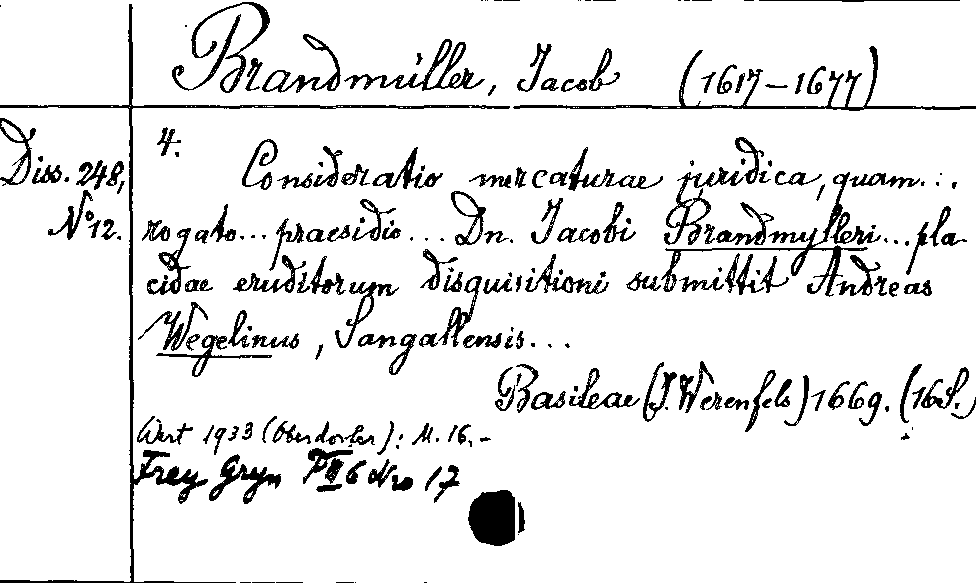 Brandmüller, Jacob (1617-1677)
Diss. 248,
No 12.
4.
Consideratio mercaturae juridica, quam...
rogato... praesidio... Dn. Jacobi Brandmylleri... pla-
cidae eruditorum disquisitioni submittit Andreas
Wegelinus, Sangallensis...
Basileae (J. Werenfels) 1669. (16 S.)
Wert 1933 (Oberdorfer): M. 16.-
Frey Gryn VII 6 Nro 17